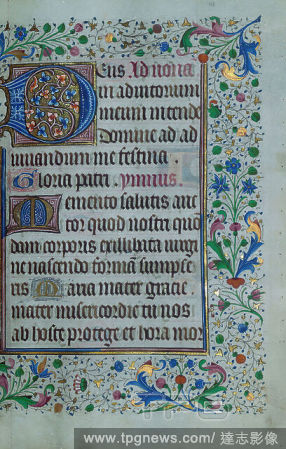 Deus Ad nonā
in adiutorium
meum intende
Domine ad ad
iuuandum me festina
Gloria patri ymnus
Memento salutis auc
tor quod nostri quō
dam corporis ex illibata uirgi
ne nascendo formā sumpse
ris Maria mater gracie
mater misericordie tu nos
ab hoste protege et hora mor
www.tpgnews.com/ 達志影像